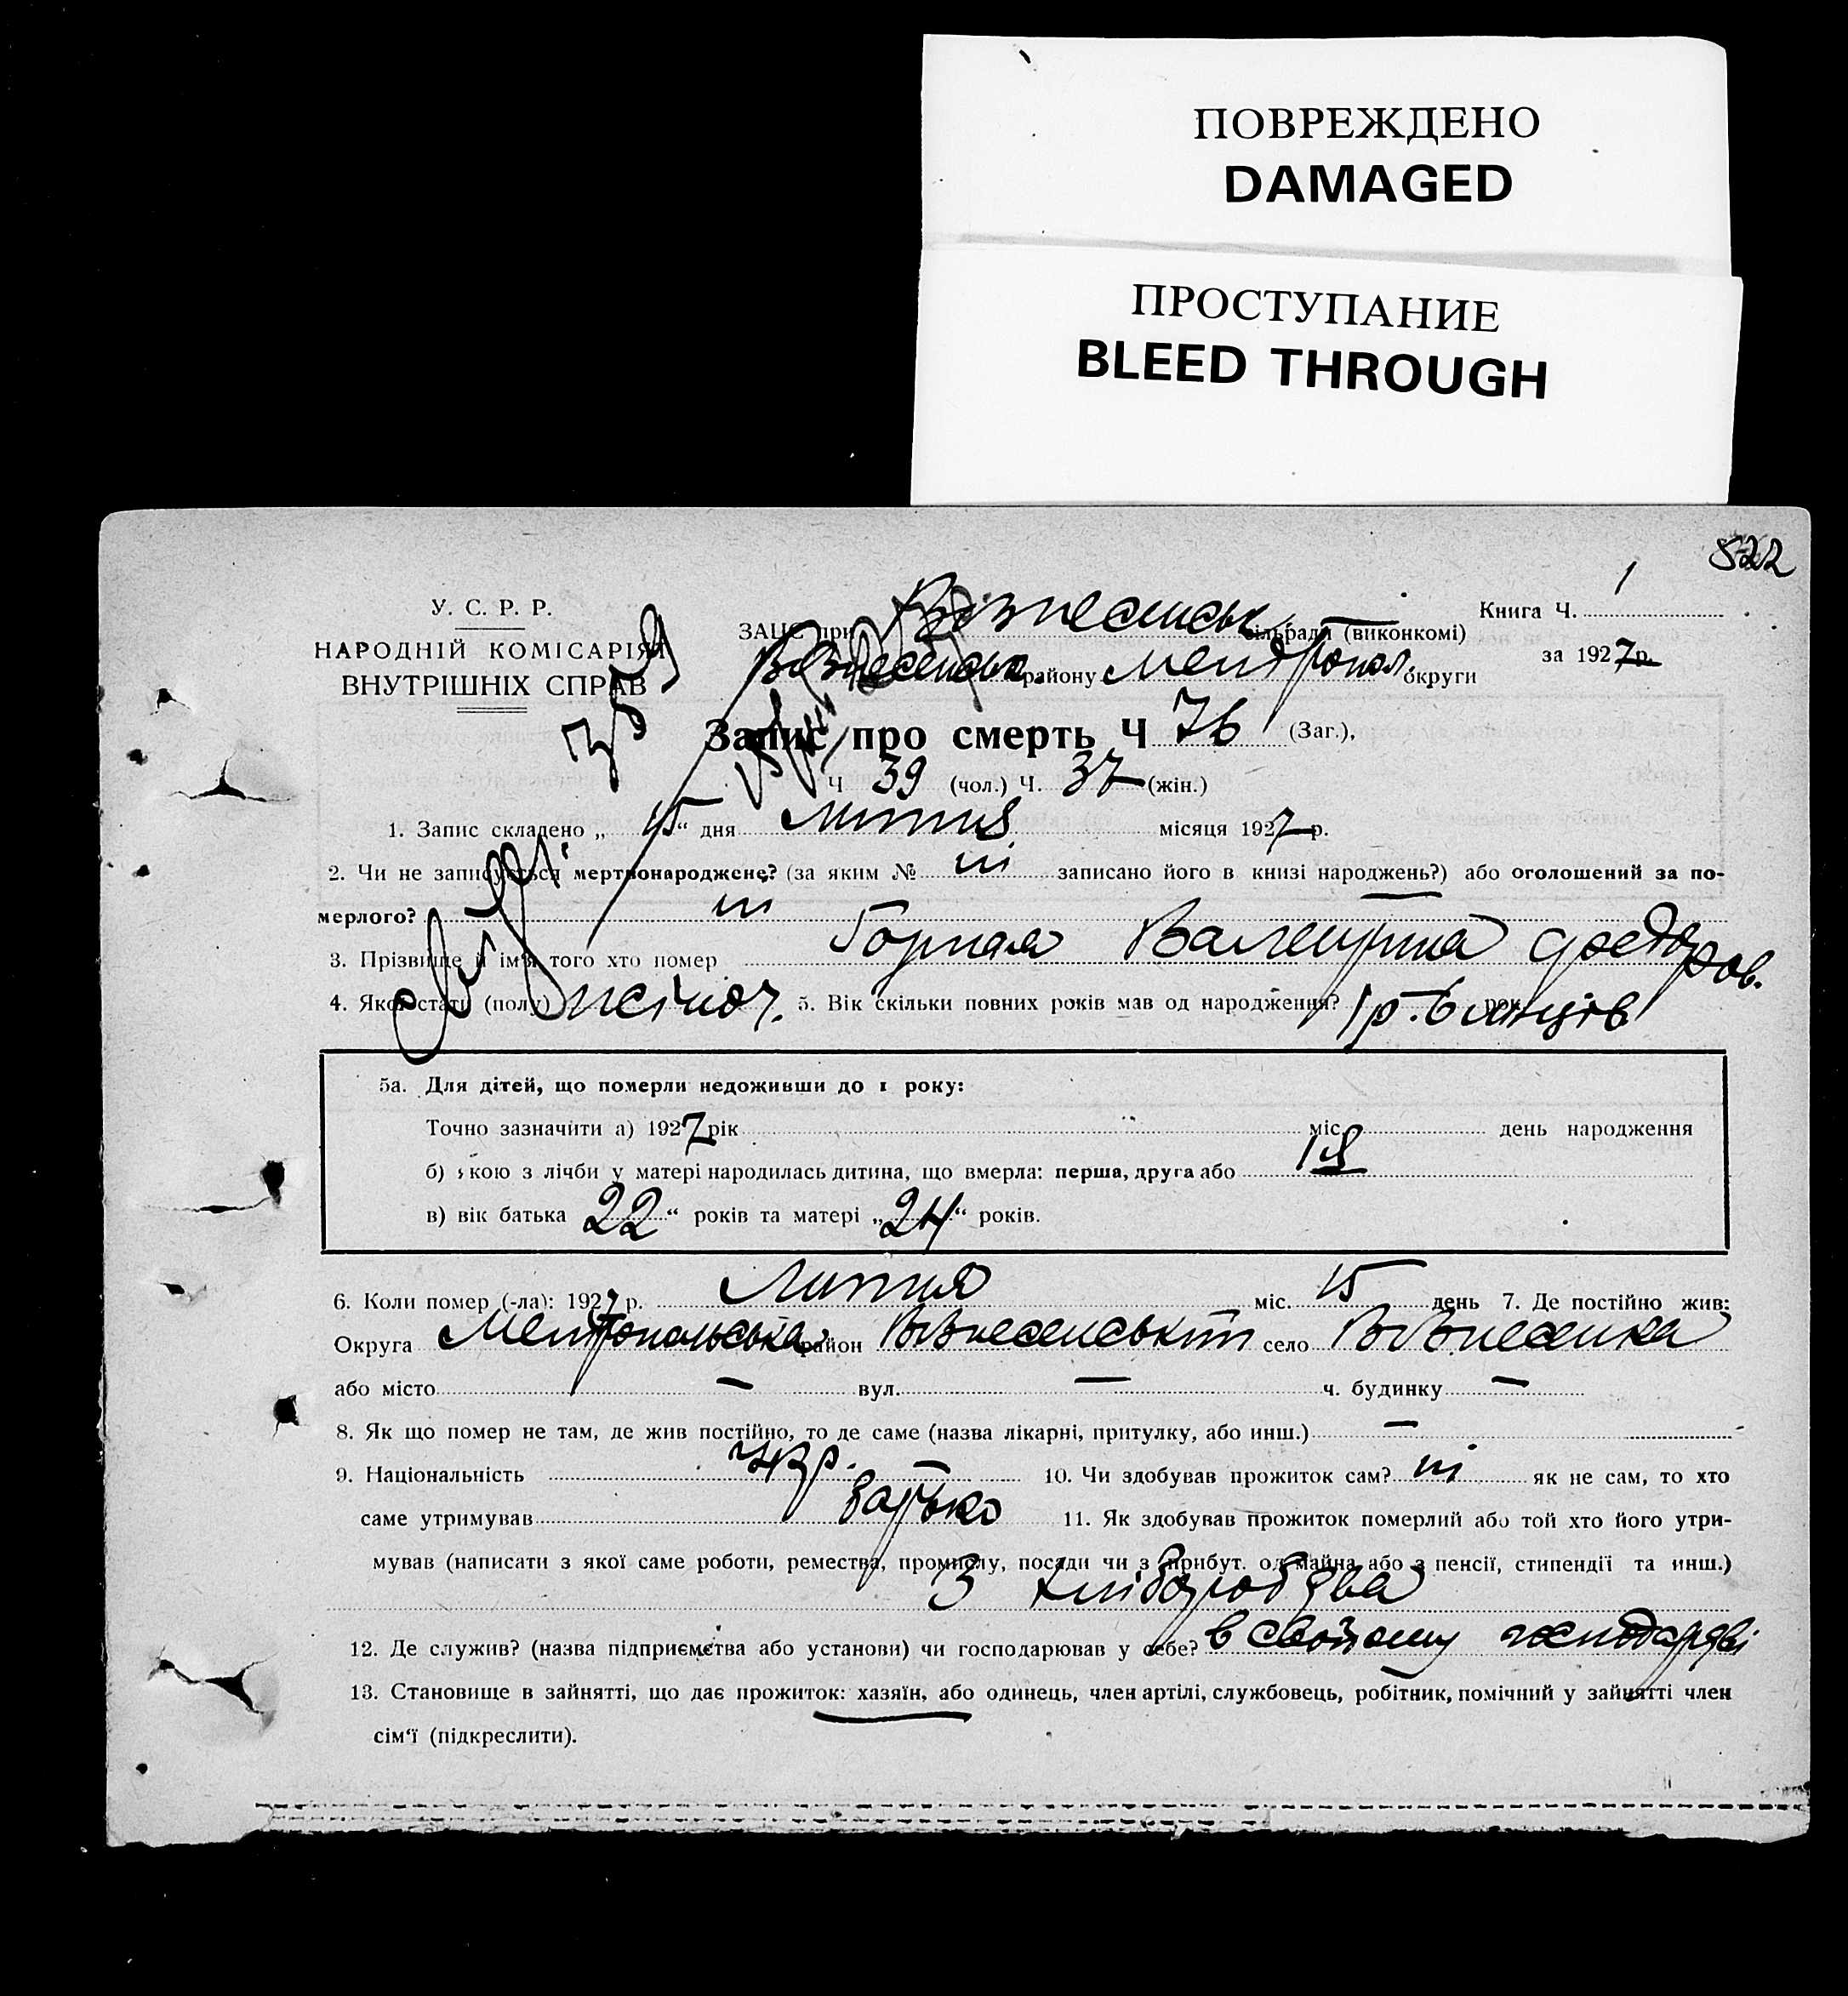 ПОВРЕЖДЕНО
DAMAGED
ПРОСТУПАНИЕ
BLEED THROUGH
522
У. С. Р. Р.
НАРОДНІЙ КОМІСАРІЯТ
ВНУТРІШНІХ СПРАВ
ЗАЦС при Вознесенськ. сільради (виконкомі)
Книга Ч. 1
Вознесенськ. району Мелітопол. округи
за 1927 р.
Запис про смерть Ч 76 (Заг.),
Ч 39 (чол.) Ч. 37 (жін.)
1. Запис складено „ 15 “ дня липня місяця 1927 р.
2. Чи не записується мертвонароджене? (за яким № ні записано його в книзі народжень?) або оголошений за по-
мерлого? ні
3. Прізвище й ім'я того хто помер Горпая Валентина Федоров.
4. Якої стати (полу) жіноч. 5. Вік скільки повних років мав од народження? 1 р. 6 місяців рок
5а. Для дітей, що померли недоживши до 1 року:
Точно зазначити а) 1927 рік міс. день народження
б) якою з лічби у матері народилась дитина, що вмерла: перша, друга або 1я
в) вік батька 22 “ років та матері „ 24 “ років.
6. Коли помер (-ла): 1927 р. Липня міс. 15 день 7. Де постійно жив:
Округа Мелітопольська район Вознесенський село Вознесенка
або місто — вул. — ч. будинку —
8. Як що помер не там, де жив постійно, то де саме (назва лікарні, притулку, або инш.) —
9. Національність укр. — 10. Чи здобував прожиток сам? ні як не сам, то хто
саме утримував батько 11. Як здобував прожиток померлий або той хто його утри-
мував (написати з якої саме роботи, ремества, промислу, посади чи з прибут. од майна або з пенсії, стипендії та инш.)
З хліборобства
12. Де служив? (назва підприємства або установи) чи господарював у себе? в свойому господарстві
13. Становище в зайнятті, що дає прожиток: хазяїн, або одинець, член артілі, службовець, робітник, помічний у зайнятті член
сім'ї (підкреслити).